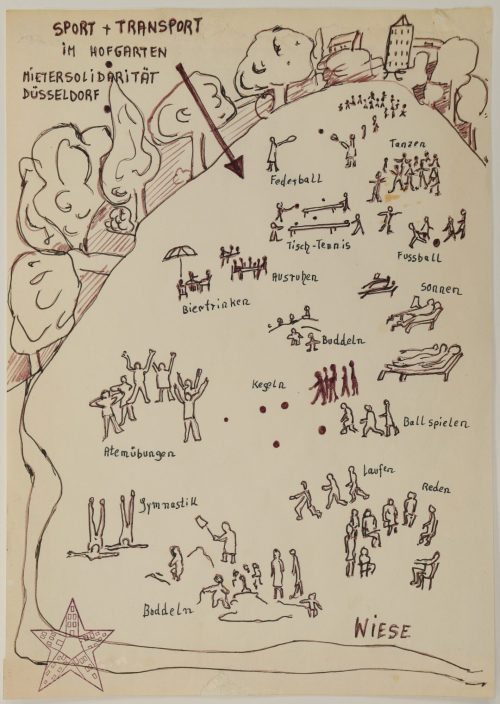 SPORT + TRANSPORT
IM HOFGARTEN
MIETERSOLIDARITÄT
DÜSSELDORF
Tanzen
Federball
Tisch-Tennis
Fussball
Ausruhen
Biertrinken
Sonnen
Buddeln
Kegeln
Ballspielen
Atemübungen
Laufen
Reden
Gymnastik
Boddeln
WIESE